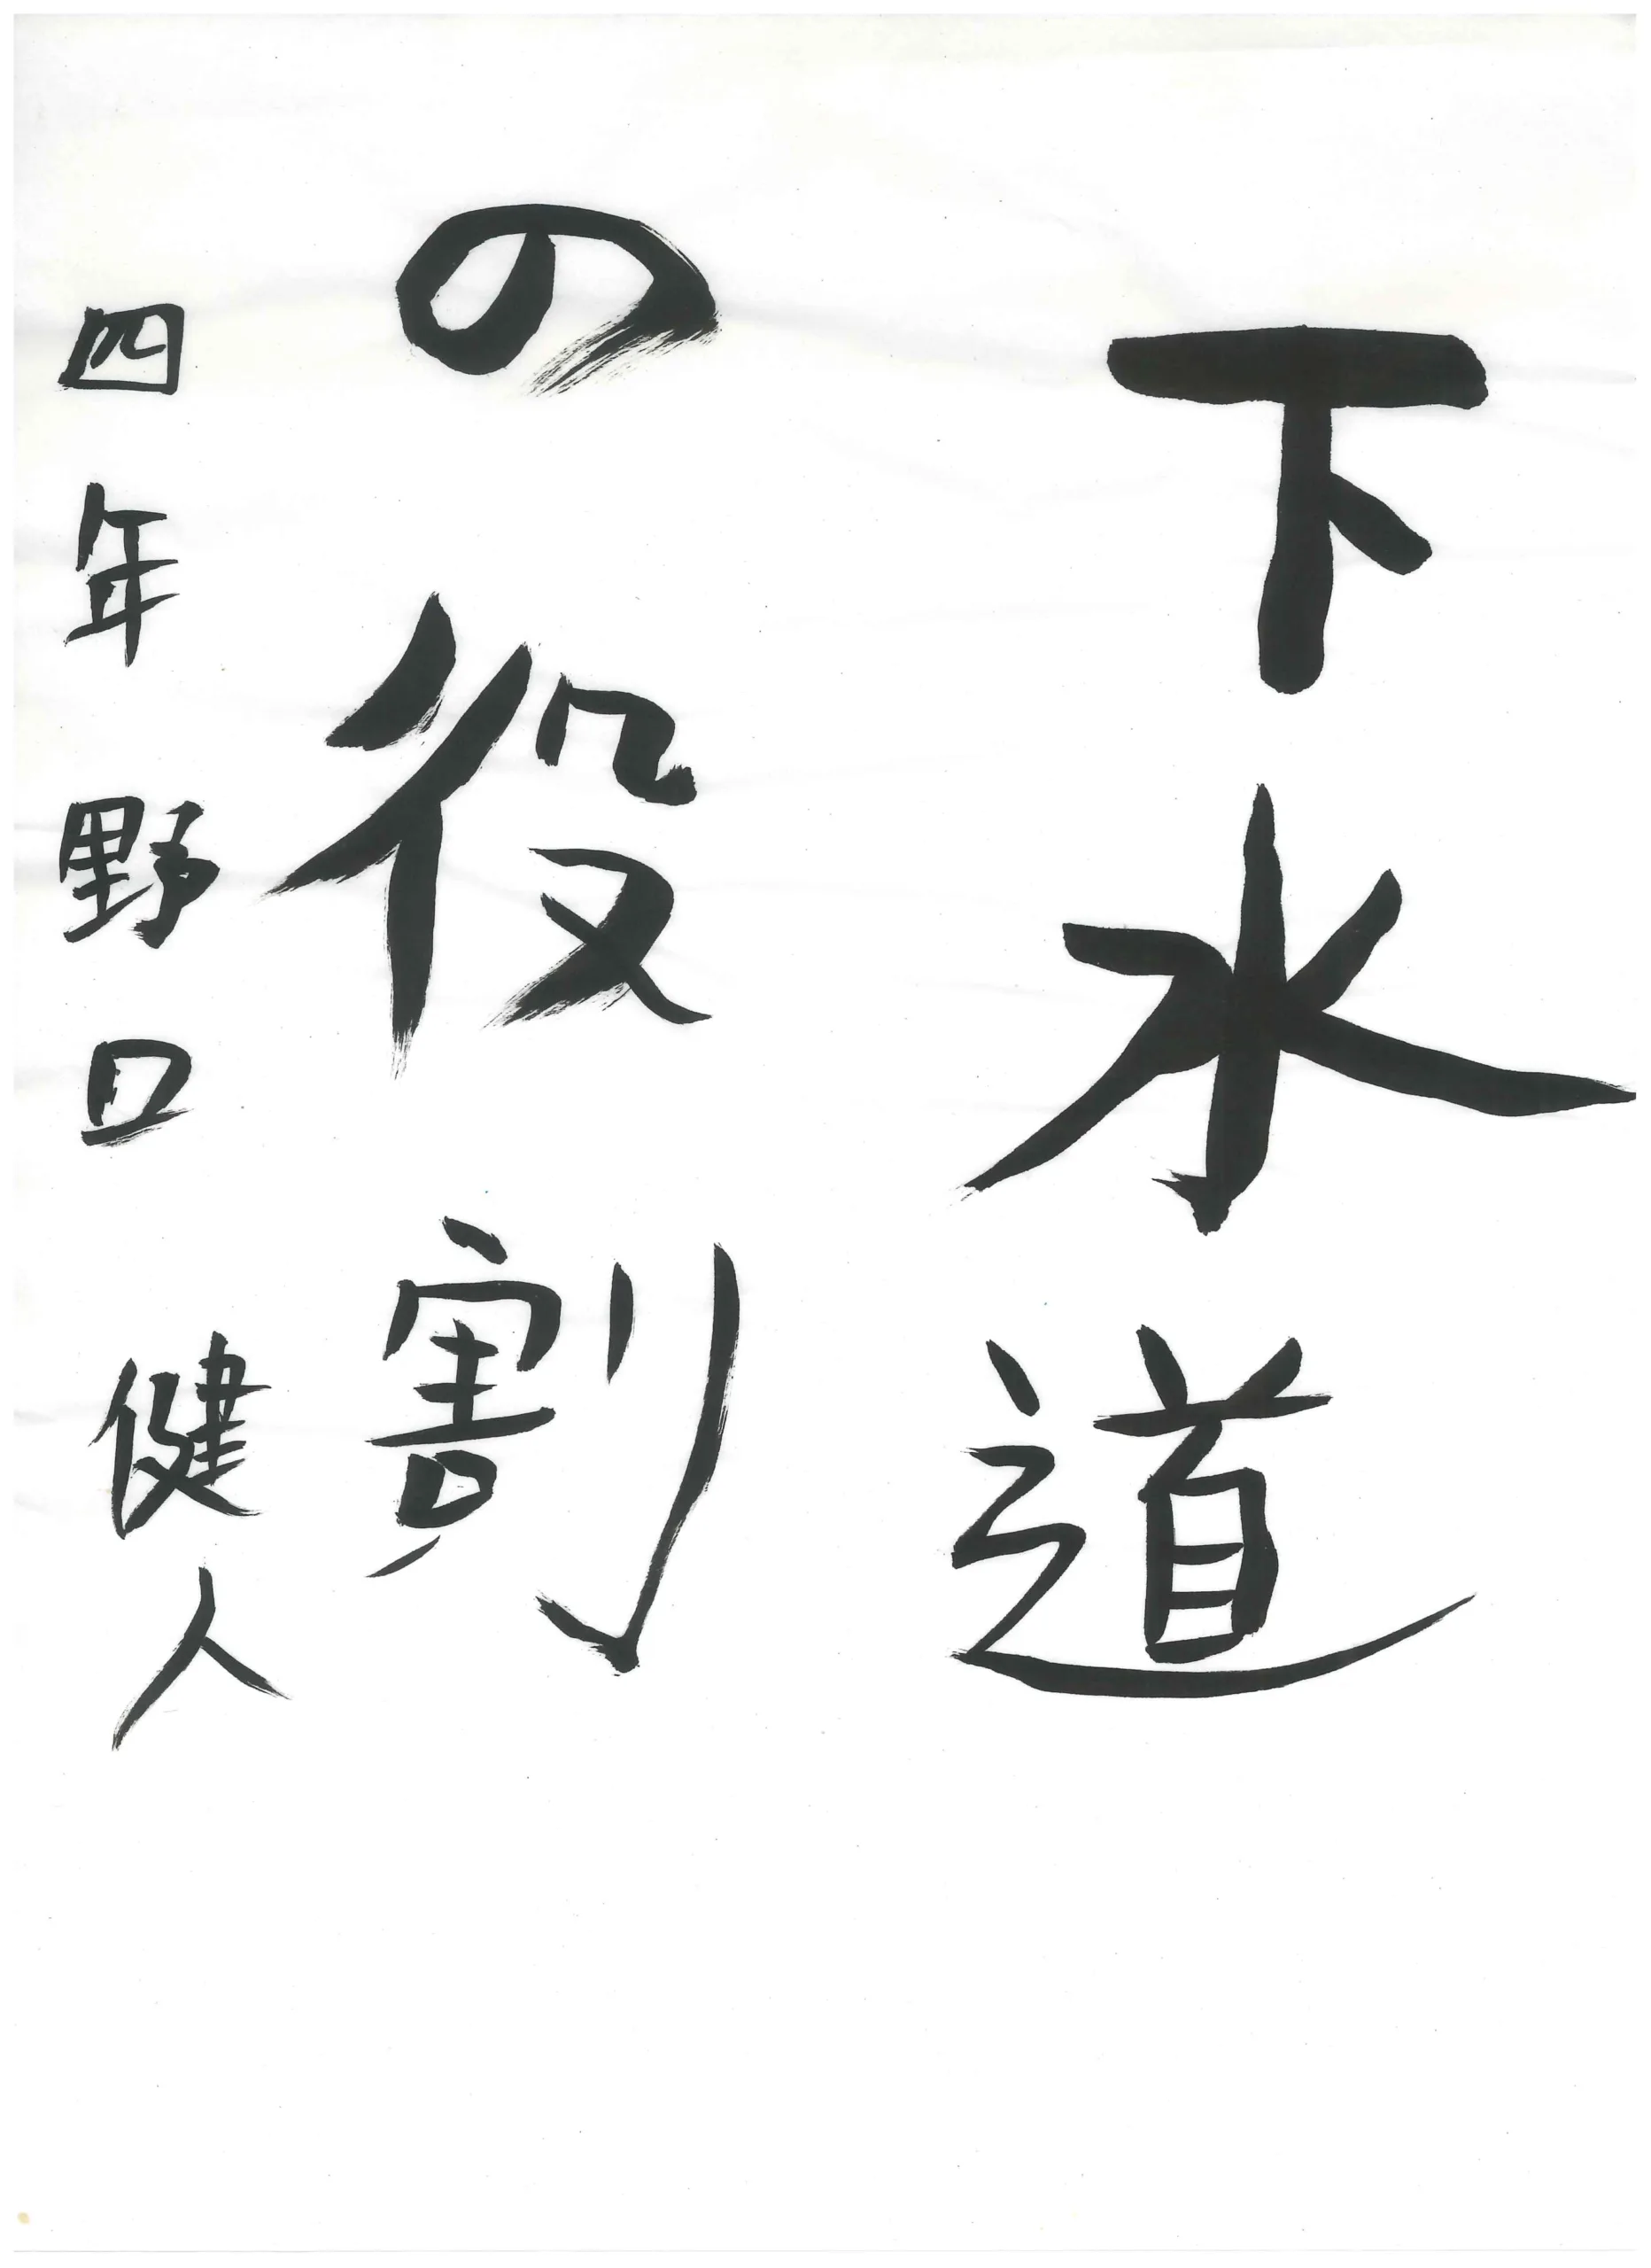 下水道
の役割
四年 野口 健人